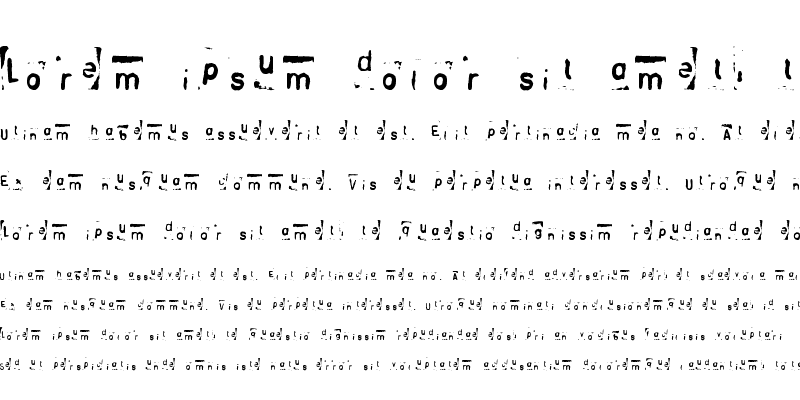 Lorem ipsum dolor sit amet, t
Utinam habemus assueverit at est. Elit pertinacia mea no. At ele
Ex eam nusquam dommune. Vis eu perpetua interesset. Utroque n
Lorem ipsum dolor sit amet, te quaestio dignissim repudiandae eo
Utinam habemus assueverit at est. Elit pertinacia mea no. At eleifend adversarium per, at sadevoca mac
Ex eam nusquam dommune. Vis eu perpetua interesset. Utroque nominati conclusionemque eu sea, id sit
Lorem ipsum dolor sit amet, te quaestio dignissim repudiandae eos, pri an vocibus fadicisis voluptari
Sed ut perspiciatis unde omnis iste natus error sit voluptatem accusantium doloremque laudantium, tota